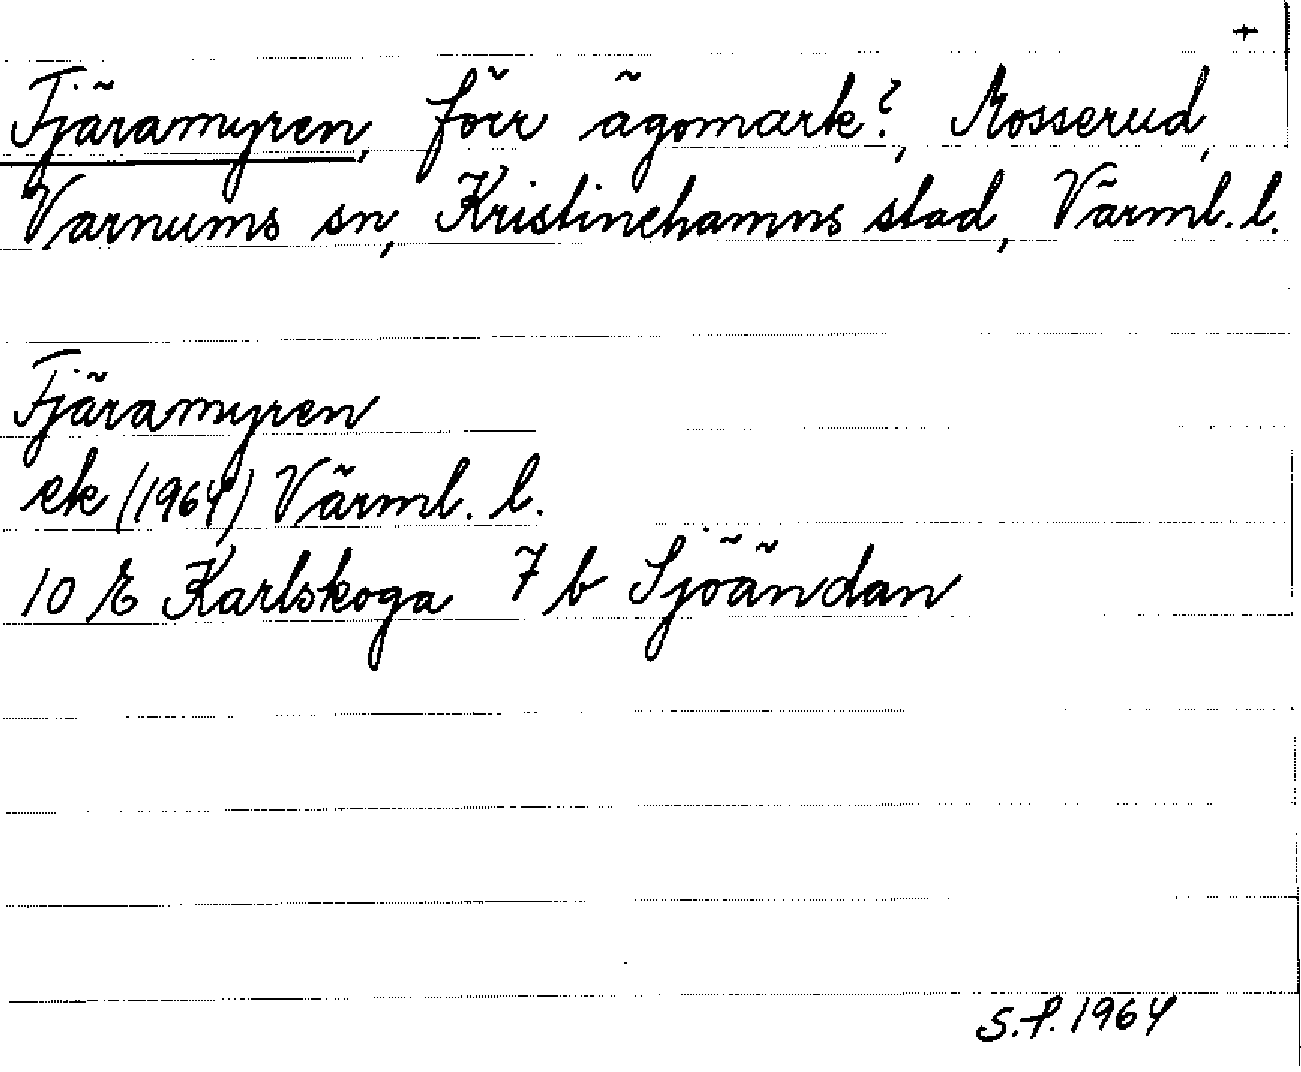 +
Tjäramyren, förr ägomark?, Mosserud,
Varnums sn, Kristinehamns stad, Värml. l.
Tjäramyren
ek (1964) Värml. l.
10 E Karlskoga 7 b Sjöändan
S.P. 1964